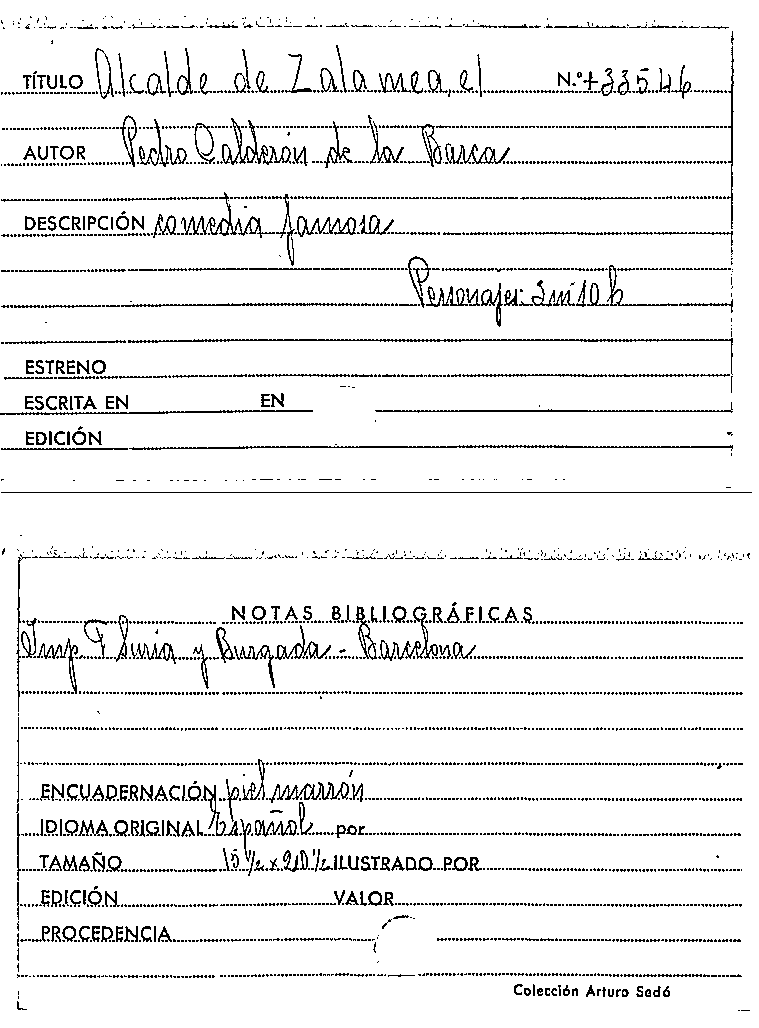 TÍTULO Alcalde de Zalamea, el N.º+33546
AUTOR Pedro Calderón de la Barca
DESCRIPCIÓN comedia famosa
Personajes: 3m 10h
ESTRENO
ESCRITA EN EN
EDICIÓN
NOTAS BIBLIOGRÁFICAS
Imp. F Suria y Burgada - Barcelona
ENCUADERNACIÓN piel marrón
IDIOMA ORIGINAL Español por
TAMAÑO 15½ x 20½ ILUSTRADO POR
EDICIÓN VALOR
PROCEDENCIA
Colección Arturo Sedó